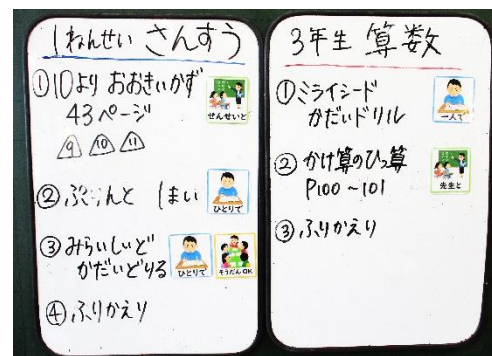 1ねんせい さんすう
①10より おおきいかず
43ページ
せんせいと
9 10 11
②ぷりんと 1まい
ひとりで
③みらいしいど
かだいどりる
ひとりで
そうだんOK
④ふりかえり
3年生 算数
①ミライシード
かだいドリル
一人で
②かけ算のひっ算
P100~101
先生と
③ふりかえり